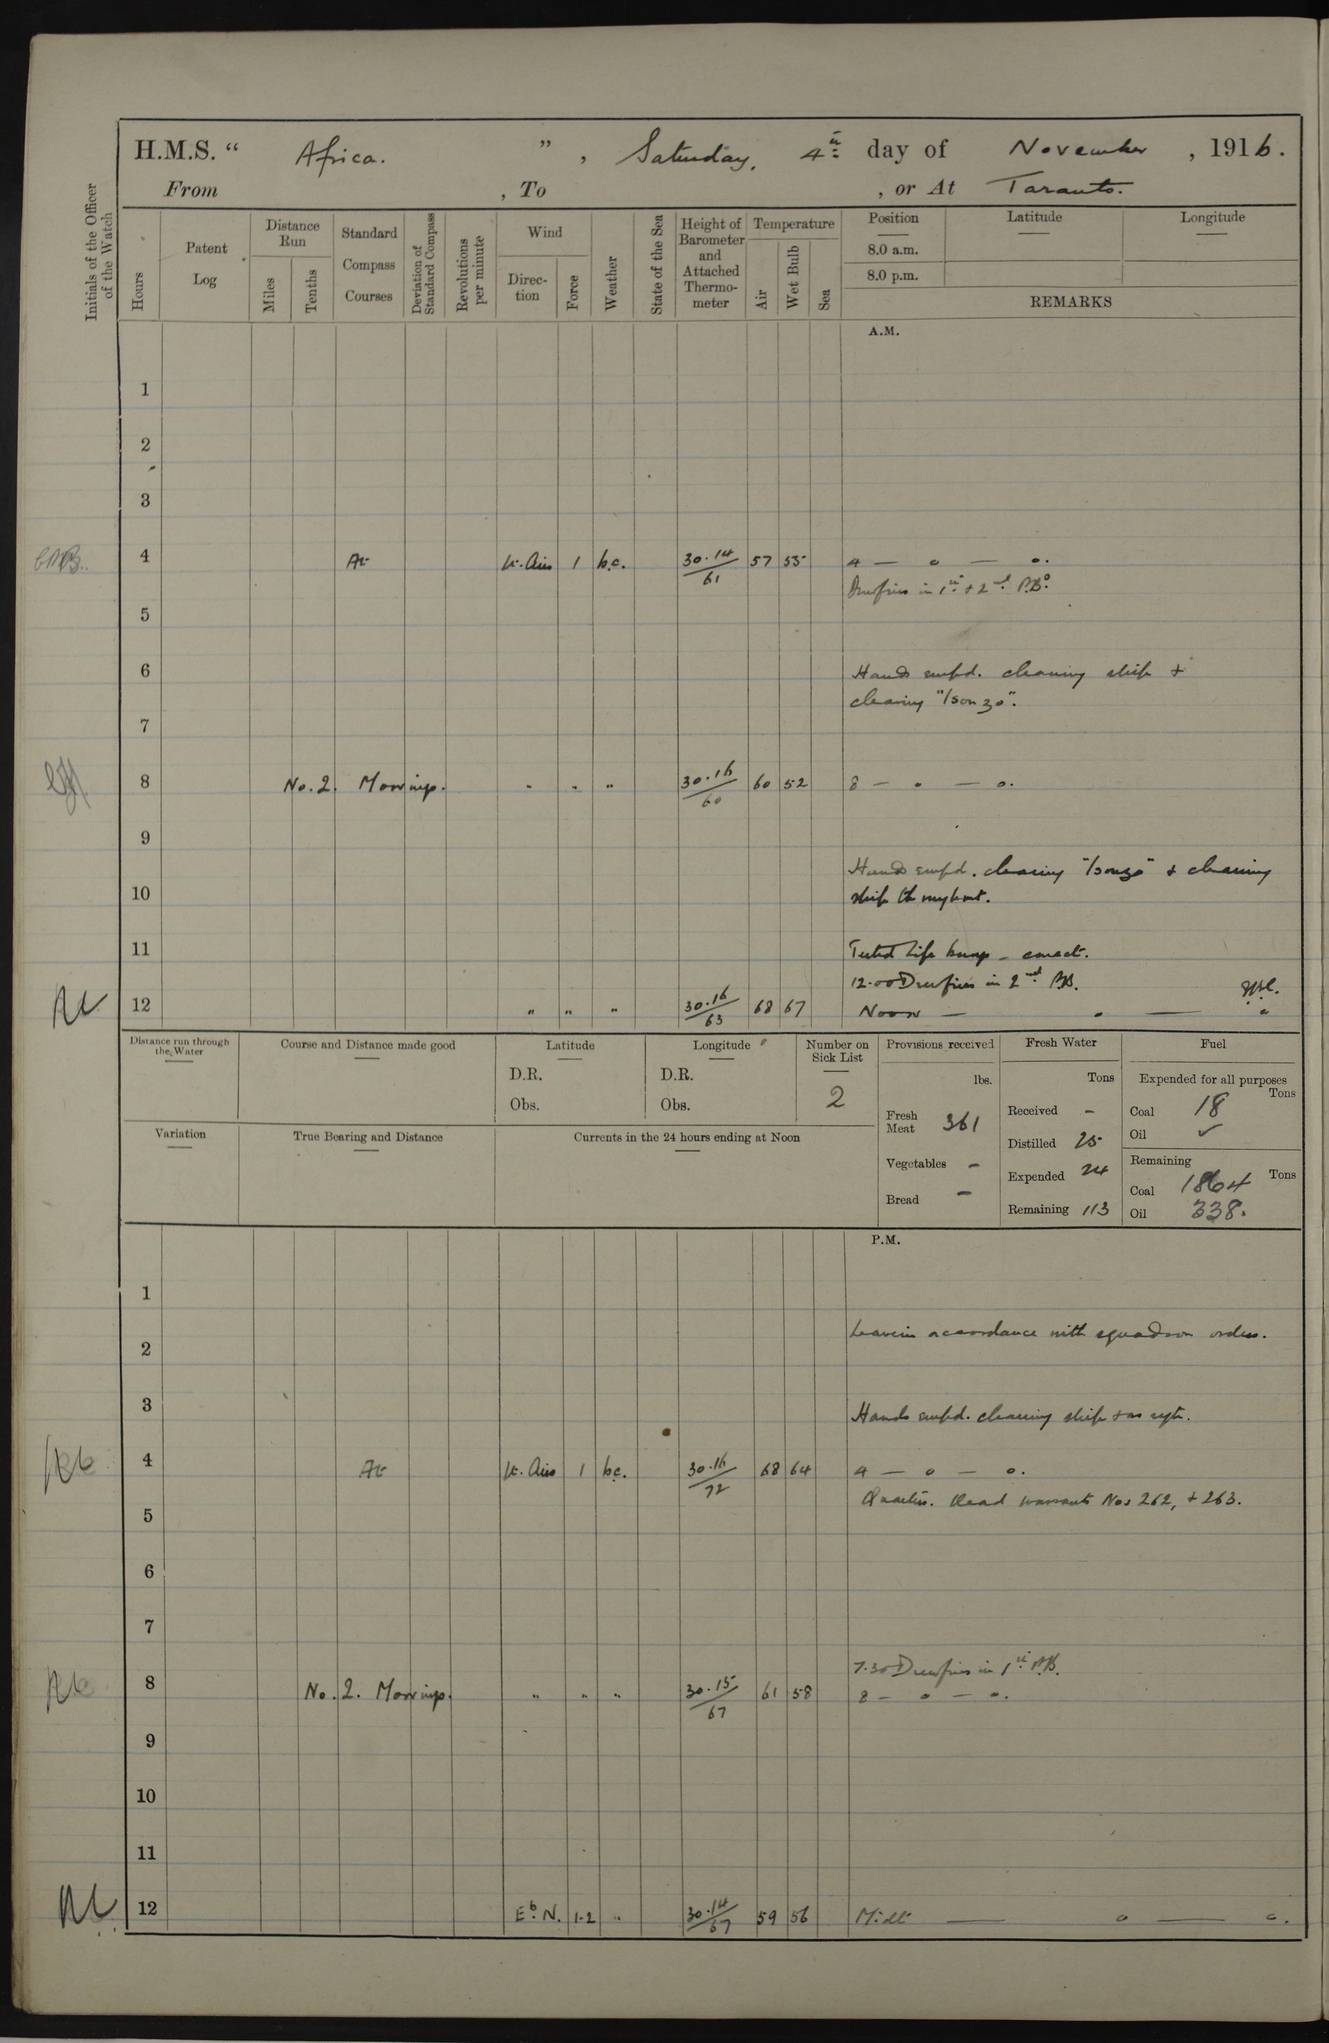 H.M.S. “ Africa. ” , Saturday, 4th day of November , 1916.
From , To , or At Taranto.
Initials of the Officer of the Watch
Hours
Patent Log
Distance Run
Miles
Tenths
Standard Compass Courses
Deviation of Standard Compass
Revolutions per minute
Wind
Direction
Force
Weather
State of the Sea
Height of Barometer and Attached Thermometer
Temperature
Air
Wet Bulb
Sea
Position Latitude Longitude
8.0 a.m.
8.0 p.m.
REMARKS
A.M.
1
2
3
4 At Lt. Airs 1 b.c. 30.14/61 57 55 4 — o — o.
in 1st + 2nd P.Bs.
5
6 Hands empd. cleaning ship +
clearing "Isonzo".
7
8 No. 2. Moorings. " " " 30.16/60 60 52 8 — o — o.
9
Hands empd. clearing "Isonzo" + cleaning
10 ship throughout.
11 Tested Life buoys – correct.
12.00 in 2nd P.B.
12 " " " 30.16/63 68 67 Noon — o — o
Distance run through the Water
Course and Distance made good
Latitude
D.R.
Obs.
Longitude
D.R.
Obs.
Number on Sick List
2
Provisions received
lbs.
Fresh Meat 361
Vegetables –
Bread –
Fresh Water
Tons
Received –
Distilled 25
Expended 24
Remaining 113
Fuel
Expended for all purposes
Tons
Coal 18
Oil ✓
Remaining
Tons
Coal 1864
Oil 338.
Variation
True Bearing and Distance
Currents in the 24 hours ending at Noon
P.M.
1
Leave in accordance with squadron orders.
2
3 Hands empd. cleaning ship + as reqte.
4 At Lt. Airs 1 b.c. 30.16/72 68 64 4 — o — o.
Quarters. Read warrants Nos 262, + 263.
5
6
7
7.30 in 1st P.B.
8 No. 2. Moorings. " " " 30.15/67 61 58 8 — o — o.
9
10
11
12 E b. N. 1-2 " 30.14/67 59 56 Midt — o — o.